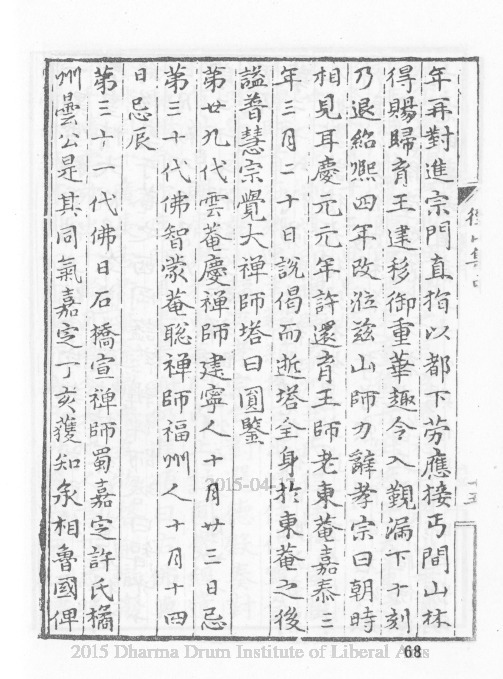 年再對進宗門直指以都下勞應接丐閒山林
得賜歸育王逮移御重華趣令入覲漏下十刻
乃退紹熙四年改涖茲山師力辭孝宗曰朝時
相見耳慶元元年許還育王師老東菴嘉泰三
年三月二十日說偈而逝塔全身於東菴之後
謚普慧宗覺大禅師塔曰圓鑒
第廿九代雲菴慶禅師建寧人十月廿三日忌
第三十代佛智蒙菴聰禅師福州人十月十四
日忌辰
第三十一代佛日石橋宣禅師蜀嘉定許氏橘
州曇公是其同氣嘉定丁亥蒦知永相魯國俾
十五
2015-04-17
2015 Dharma Drum Institute of Liberal Arts
68